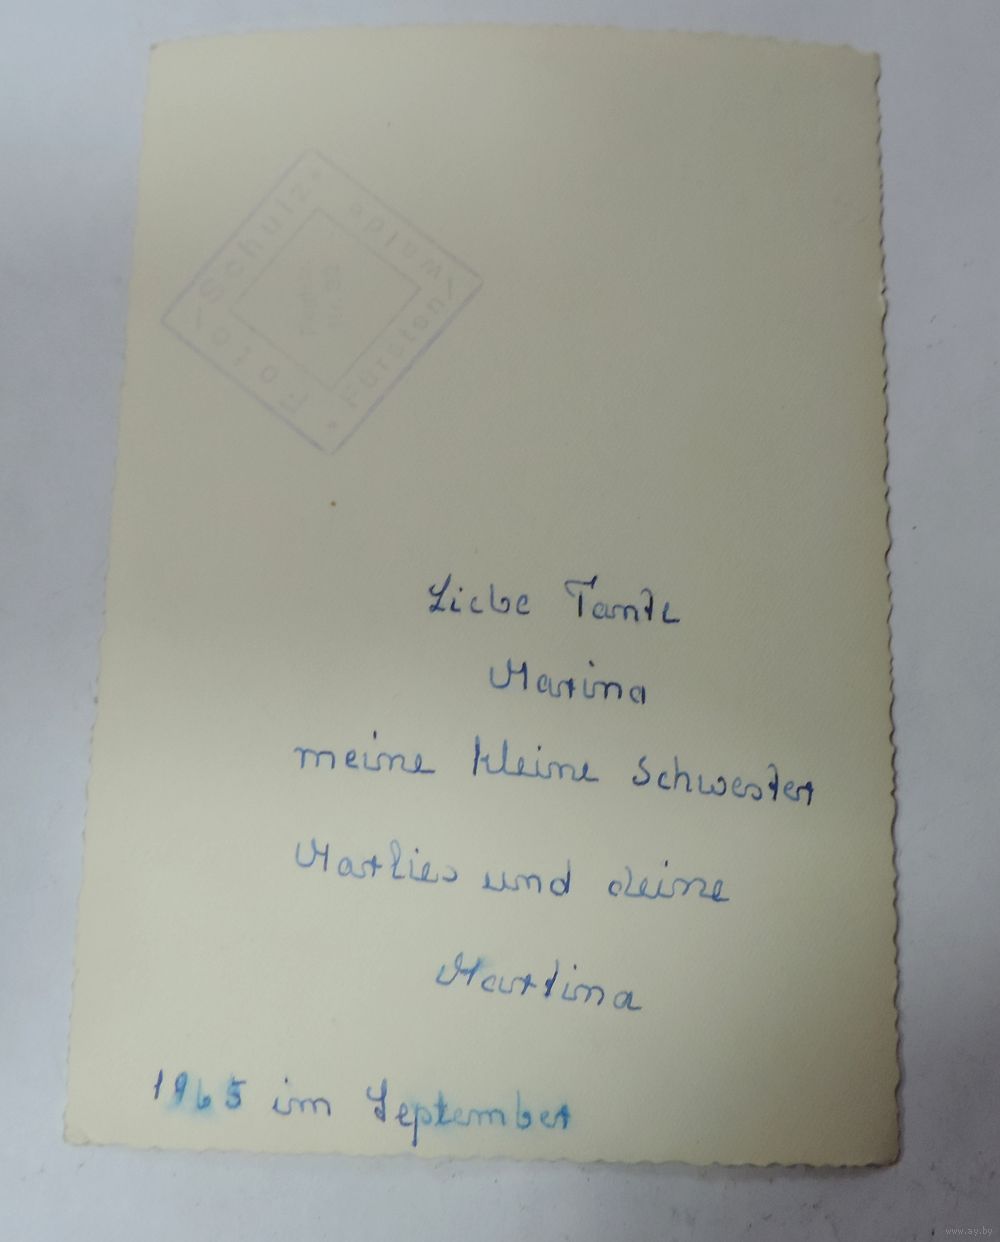 Foto / Schulz * Fürsten / walde *
Liebe Tante
Marina
meine kleine Schwester
Marlies und deine
Martina
1965 im September
www.ay.by